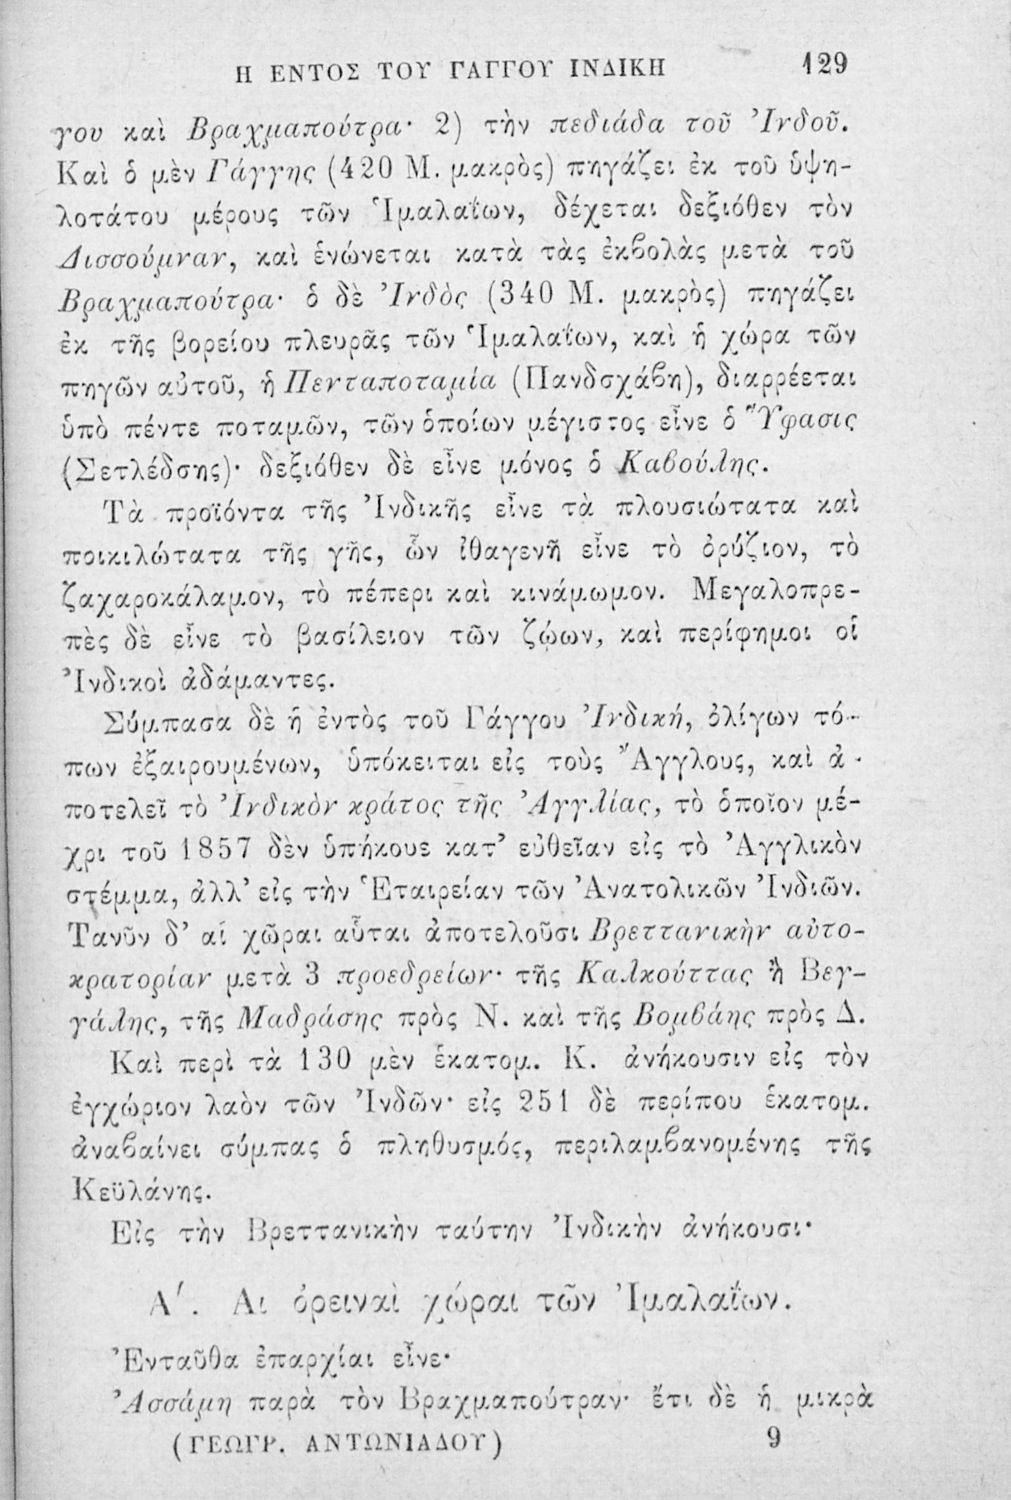 Η ΕΝΤΟΣ ΤΟΥ ΓΑΓΓΟΥ ΙΝΔΙΚΗ 129
γου καὶ Βραχμαπούτρα· 2) τὴν πεδιάδα τοῦ Ἰνδοῦ.
Καὶ ὁ μὲν Γάγγης (420 Μ. μακρὸς) πηγάζει ἐκ τοῦ ὑψη-
λοτάτου μέρους τῶν Ἱμαλαΐων, δέχεται δεξιόθεν τὸν
Δισσούμναν, καὶ ἑνώνεται κατὰ τὰς ἐκβολὰς μετὰ τοῦ
Βραχμαπούτρα· ὁ δὲ Ἰνδὸς (340 Μ. μακρὸς) πηγάζει
ἐκ τῆς βορείου πλευρᾶς τῶν Ἱμαλαΐων, καὶ ἡ χώρα τῶν
πηγῶν αὐτοῦ, ἡ Πενταποταμία (Πανδσχάβη), διαρρέεται
ὑπὸ πέντε ποταμῶν, τῶν ὁποίων μέγιστος εἶνε ὁ Ὕφασις
(Σετλέδσης)· δεξιόθεν δὲ εἶνε μόνος ὁ Καβούλης.
Τὰ προϊόντα τῆς Ἰνδικῆς εἶνε τὰ πλουσιώτατα καὶ
ποικιλώτατα τῆς γῆς, ὧν ἰθαγενῆ εἶνε τὸ ὀρύζιον, τὸ
ζαχαροκάλαμον, τὸ πέπερι καὶ κινάμωμον. Μεγαλοπρε-
πὲς δὲ εἶνε τὸ βασίλειον τῶν ζῴων, καὶ περίφημοι οἱ
Ἰνδικοὶ ἀδάμαντες.
Σύμπασα δὲ ἡ ἐντὸς τοῦ Γάγγου Ἰνδική, ὀλίγων τό-
πων ἐξαιρουμένων, ὑπόκειται εἰς τοὺς Ἄγγλους, καὶ ἀ-
ποτελεῖ τὸ Ἰνδικὸν κράτος τῆς Ἀγγλίας, τὸ ὁποῖον μέ-
χρι τοῦ 1857 δὲν ὑπήκουε κατ' εὐθεῖαν εἰς τὸ Ἀγγλικὸν
στέμμα, ἀλλ' εἰς τὴν Ἑταιρείαν τῶν Ἀνατολικῶν Ἰνδιῶν.
Τανῦν δ' αἱ χῶραι αὗται ἀποτελοῦσι Βρεττανικὴν αὐτο-
κρατορίαν μετὰ 3 προεδρείων· τῆς Καλκούττας ἢ Βεγ-
γάλης, τῆς Μαδράσης πρὸς Ν. καὶ τῆς Βομβάης πρὸς Δ.
Καὶ περὶ τὰ 130 μὲν ἑκατομ. Κ. ἀνήκουσιν εἰς τὸν
ἐγχώριον λαὸν τῶν Ἰνδῶν· εἰς 251 δὲ περίπου ἑκατομ.
ἀναβαίνει σύμπας ὁ πληθυσμός, περιλαμβανομένης τῆς
Κεϋλάνης.
Εἰς τὴν Βρεττανικὴν ταύτην Ἰνδικὴν ἀνήκουσι·
Α′. Αἱ ὀρειναὶ χώραι τῶν Ἱμαλαΐων.
Ἐνταῦθα ἐπαρχίαι εἶνε·
Ἀσσάμη παρὰ τὸν Βραχμαπούτραν· ἔτι δὲ ἡ μικρὰ
(ΓΕΩΓΡ. ΑΝΤΩΝΙΑΔΟΥ) 9